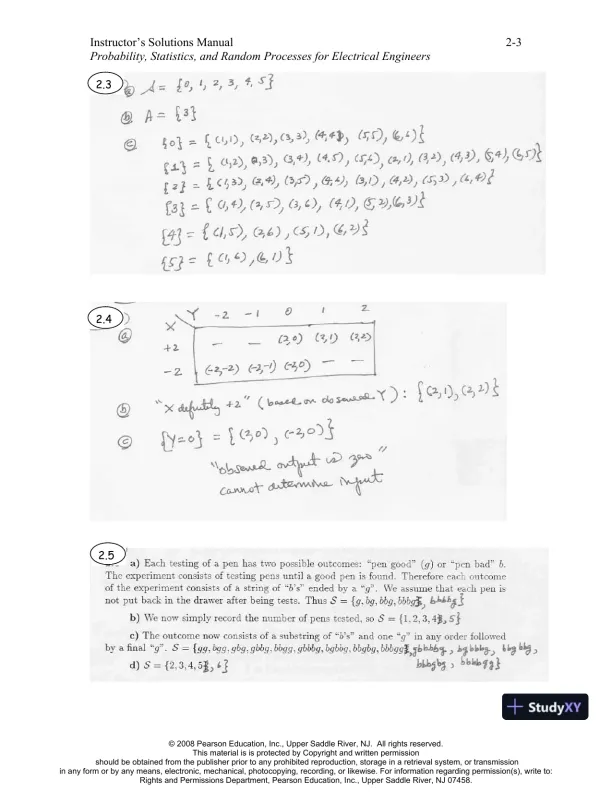 Instructor's Solutions Manual 2-3
Probability, Statistics, and Random Processes for Electrical Engineers
2.3
ⓐ A = {0, 1, 2, 3, 4, 5}
ⓑ A = {3}
ⓒ {0} = { (1,1), (2,2), (3,3), (4,4), (5,5), (6,6)}
{1} = { (1,2), (2,3), (3,4), (4,5), (5,6), (2,1), (3,2), (4,3), (5,4), (6,5)}
{2} = { (1,3), (2,4), (3,5), (4,6), (3,1), (4,2), (5,3), (6,4)}
{3} = { (1,4), (2,5), (3,6), (4,1), (5,2), (6,3)}
{4} = { (1,5), (2,6), (5,1), (6,2)}
{5} = { (1,6), (6,1)}
2.4
ⓐ
Y -2 -1 0 1 2
X
+2 — — (2,0) (2,1) (2,2)
-2 (-2,-2) (-2,-1) (-2,0) — —
ⓑ "X definitely +2" (based on observed Y) : {(2,1), (2,2)}
ⓒ {Y=0} = {(2,0), (-2,0)}
"observed output is zero"
cannot determine input
2.5
a) Each testing of a pen has two possible outcomes: "pen good" (g) or "pen bad" b.
The experiment consists of testing pens until a good pen is found. Therefore each outcome
of the experiment consists of a string of "b's" ended by a "g". We assume that each pen is
not put back in the drawer after being tests. Thus S = {g, bg, bbg, bbbg, bbbbg}
b) We now simply record the number of pens tested, so S = {1, 2, 3, 4, 5}
c) The outcome now consists of a substring of "b's" and one "g" in any order followed
by a final "g". S = {gg, bgg, gbg, gbbg, bbgg, gbbbg, bgbbg, bbgbg, bbbgg, gbbbbg, bgbbbg, bbgbbg,
d) S = {2, 3, 4, 5, 6} bbbgbg, bbbbgg}
StudyXY
© 2008 Pearson Education, Inc., Upper Saddle River, NJ. All rights reserved.
This material is is protected by Copyright and written permission
should be obtained from the publisher prior to any prohibited reproduction, storage in a retrieval system, or transmission
in any form or by any means, electronic, mechanical, photocopying, recording, or likewise. For information regarding permission(s), write to:
Rights and Permissions Department, Pearson Education, Inc., Upper Saddle River, NJ 07458.